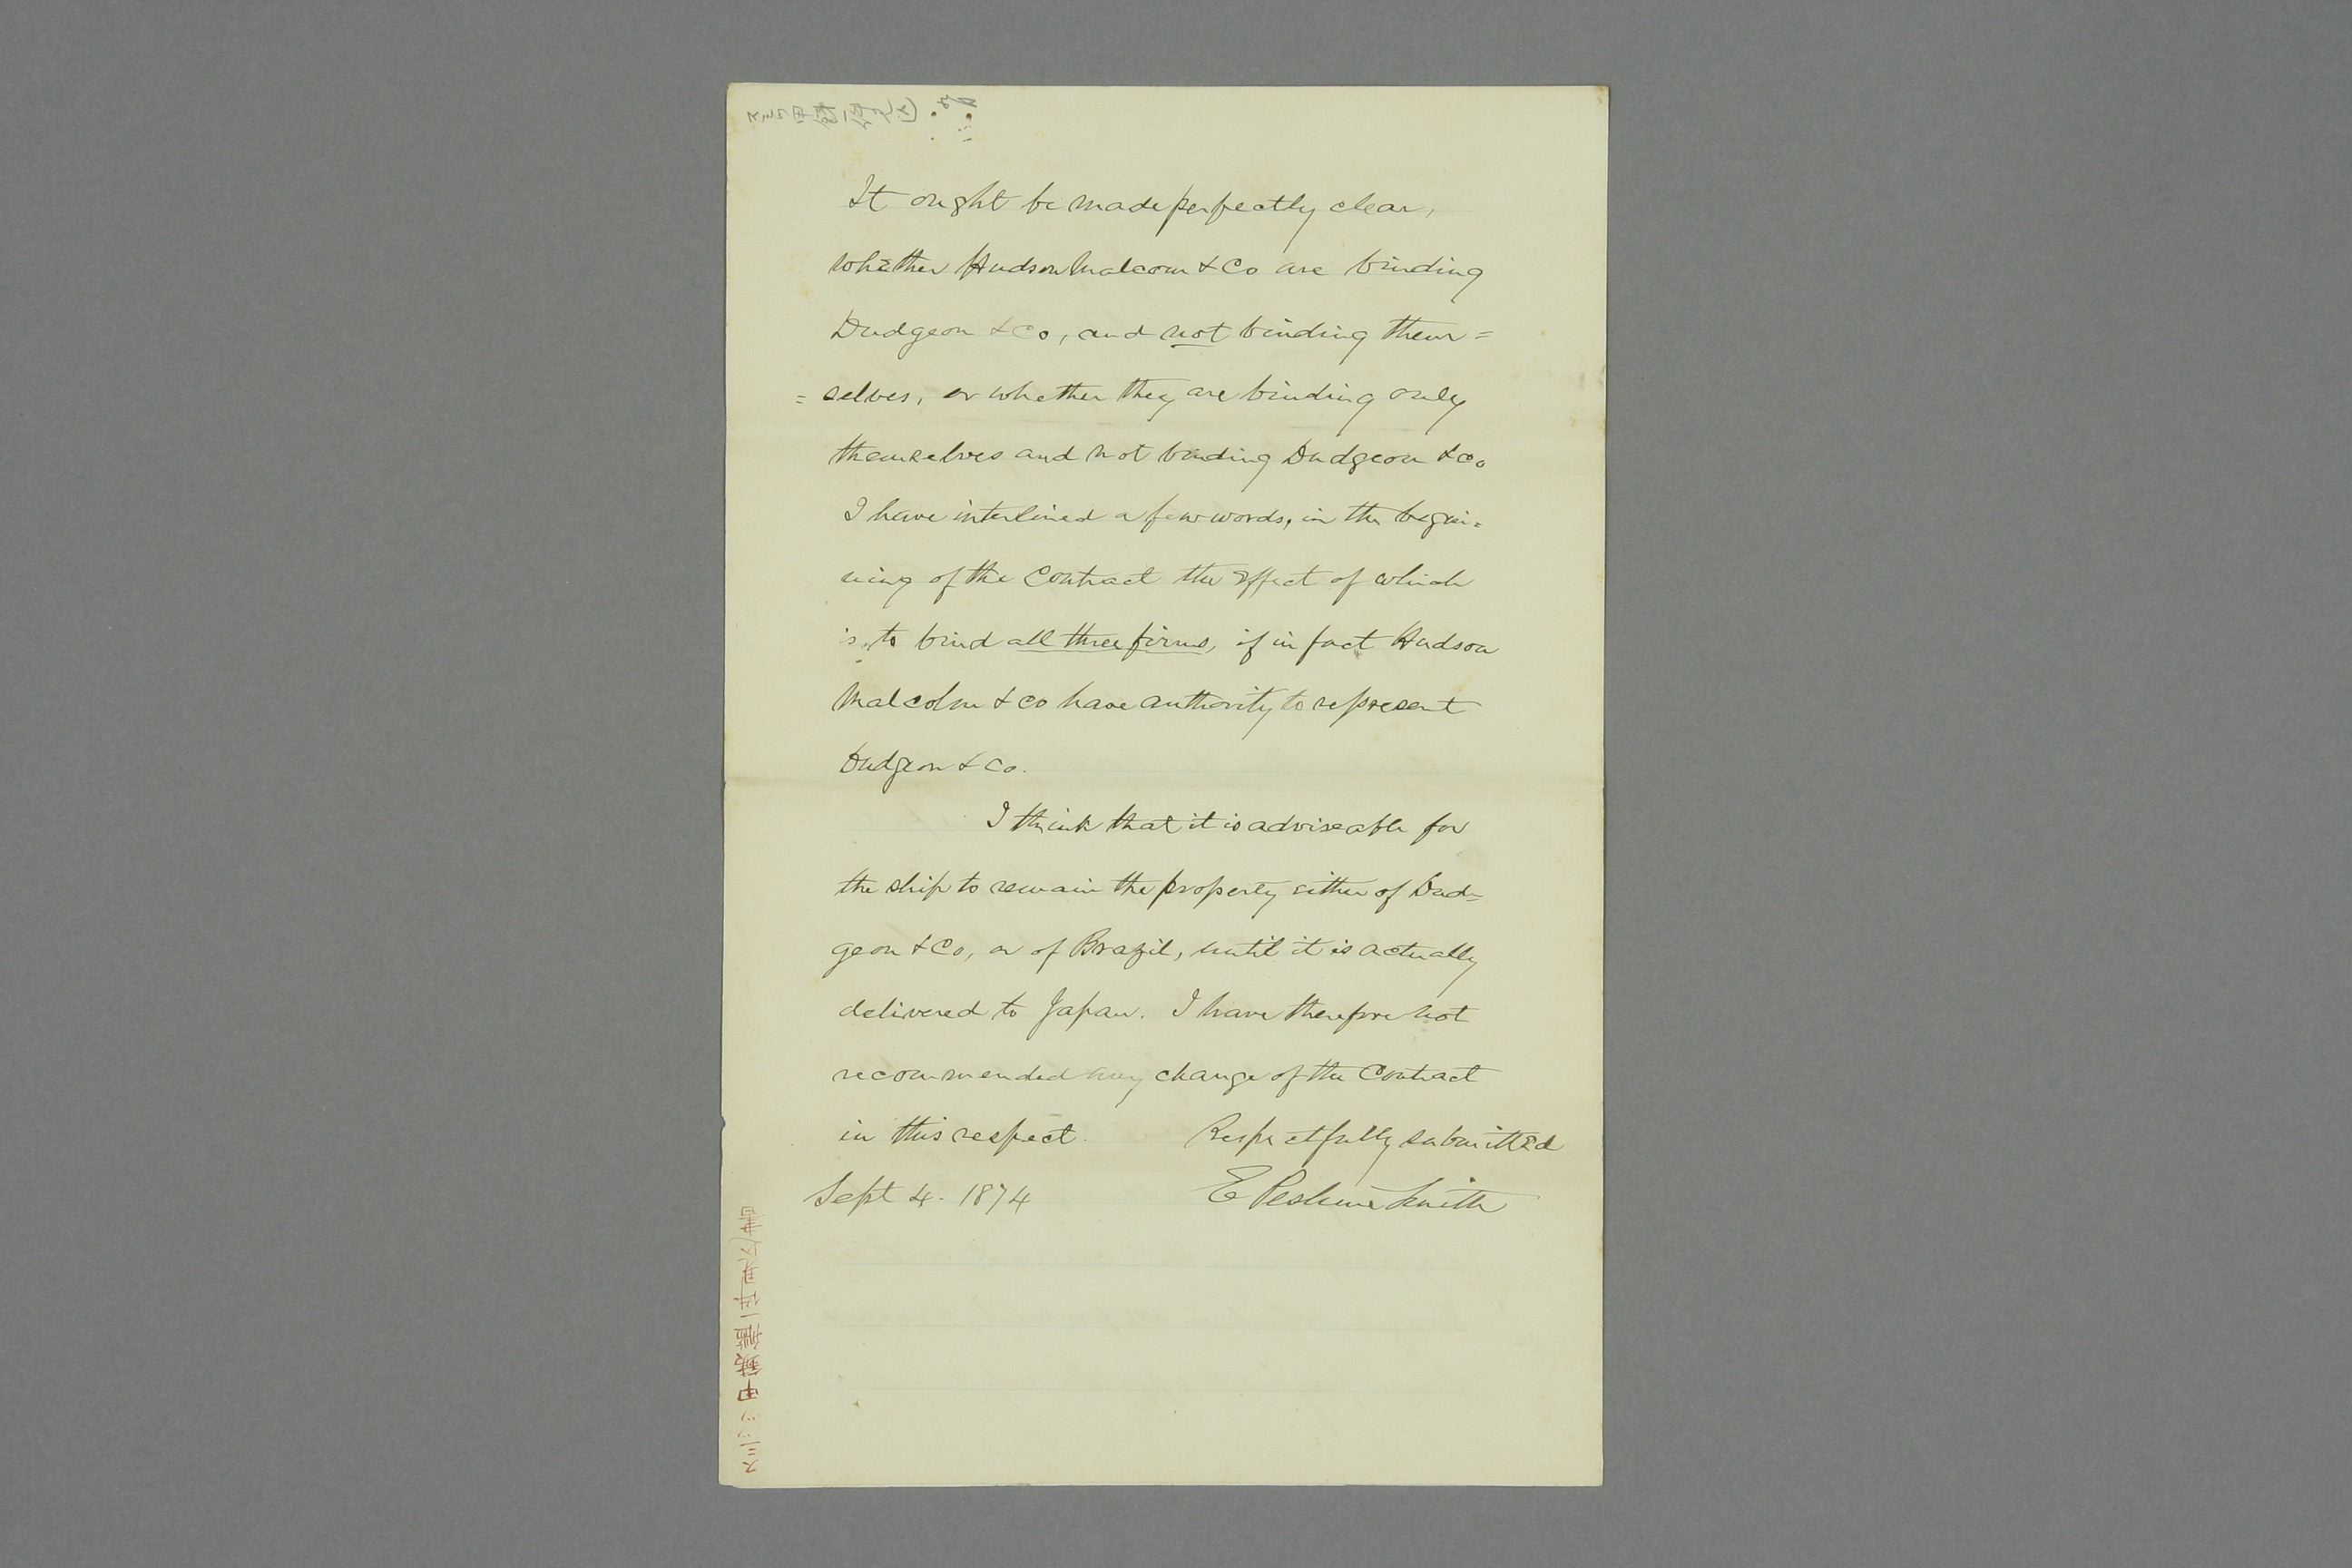 It ought be made perfectly clear,
whether Hudson Malcom & Co are binding
Dudgeon & Co, and not binding them=
= selves, or whether they are binding only
themselves and not binding Dudgeon & Co
I have interlined a few words, in the begin=
ning of the Contract the effect of which
is to bind all three firms, if in fact Hudson
Malcolm & Co have authority to represent
Dudgeon & Co.
I think that it is adviseable for
the ship to remain the property either of Dud=
geon & Co, or of Brazil, until it is actually
delivered to Japan. I have therefore not
recommended any change of the Contract
in this respect. Respectfully submitted
Sept 4. 1874 E Peshine Smith
スミツソ甲鉄艦一件見込書